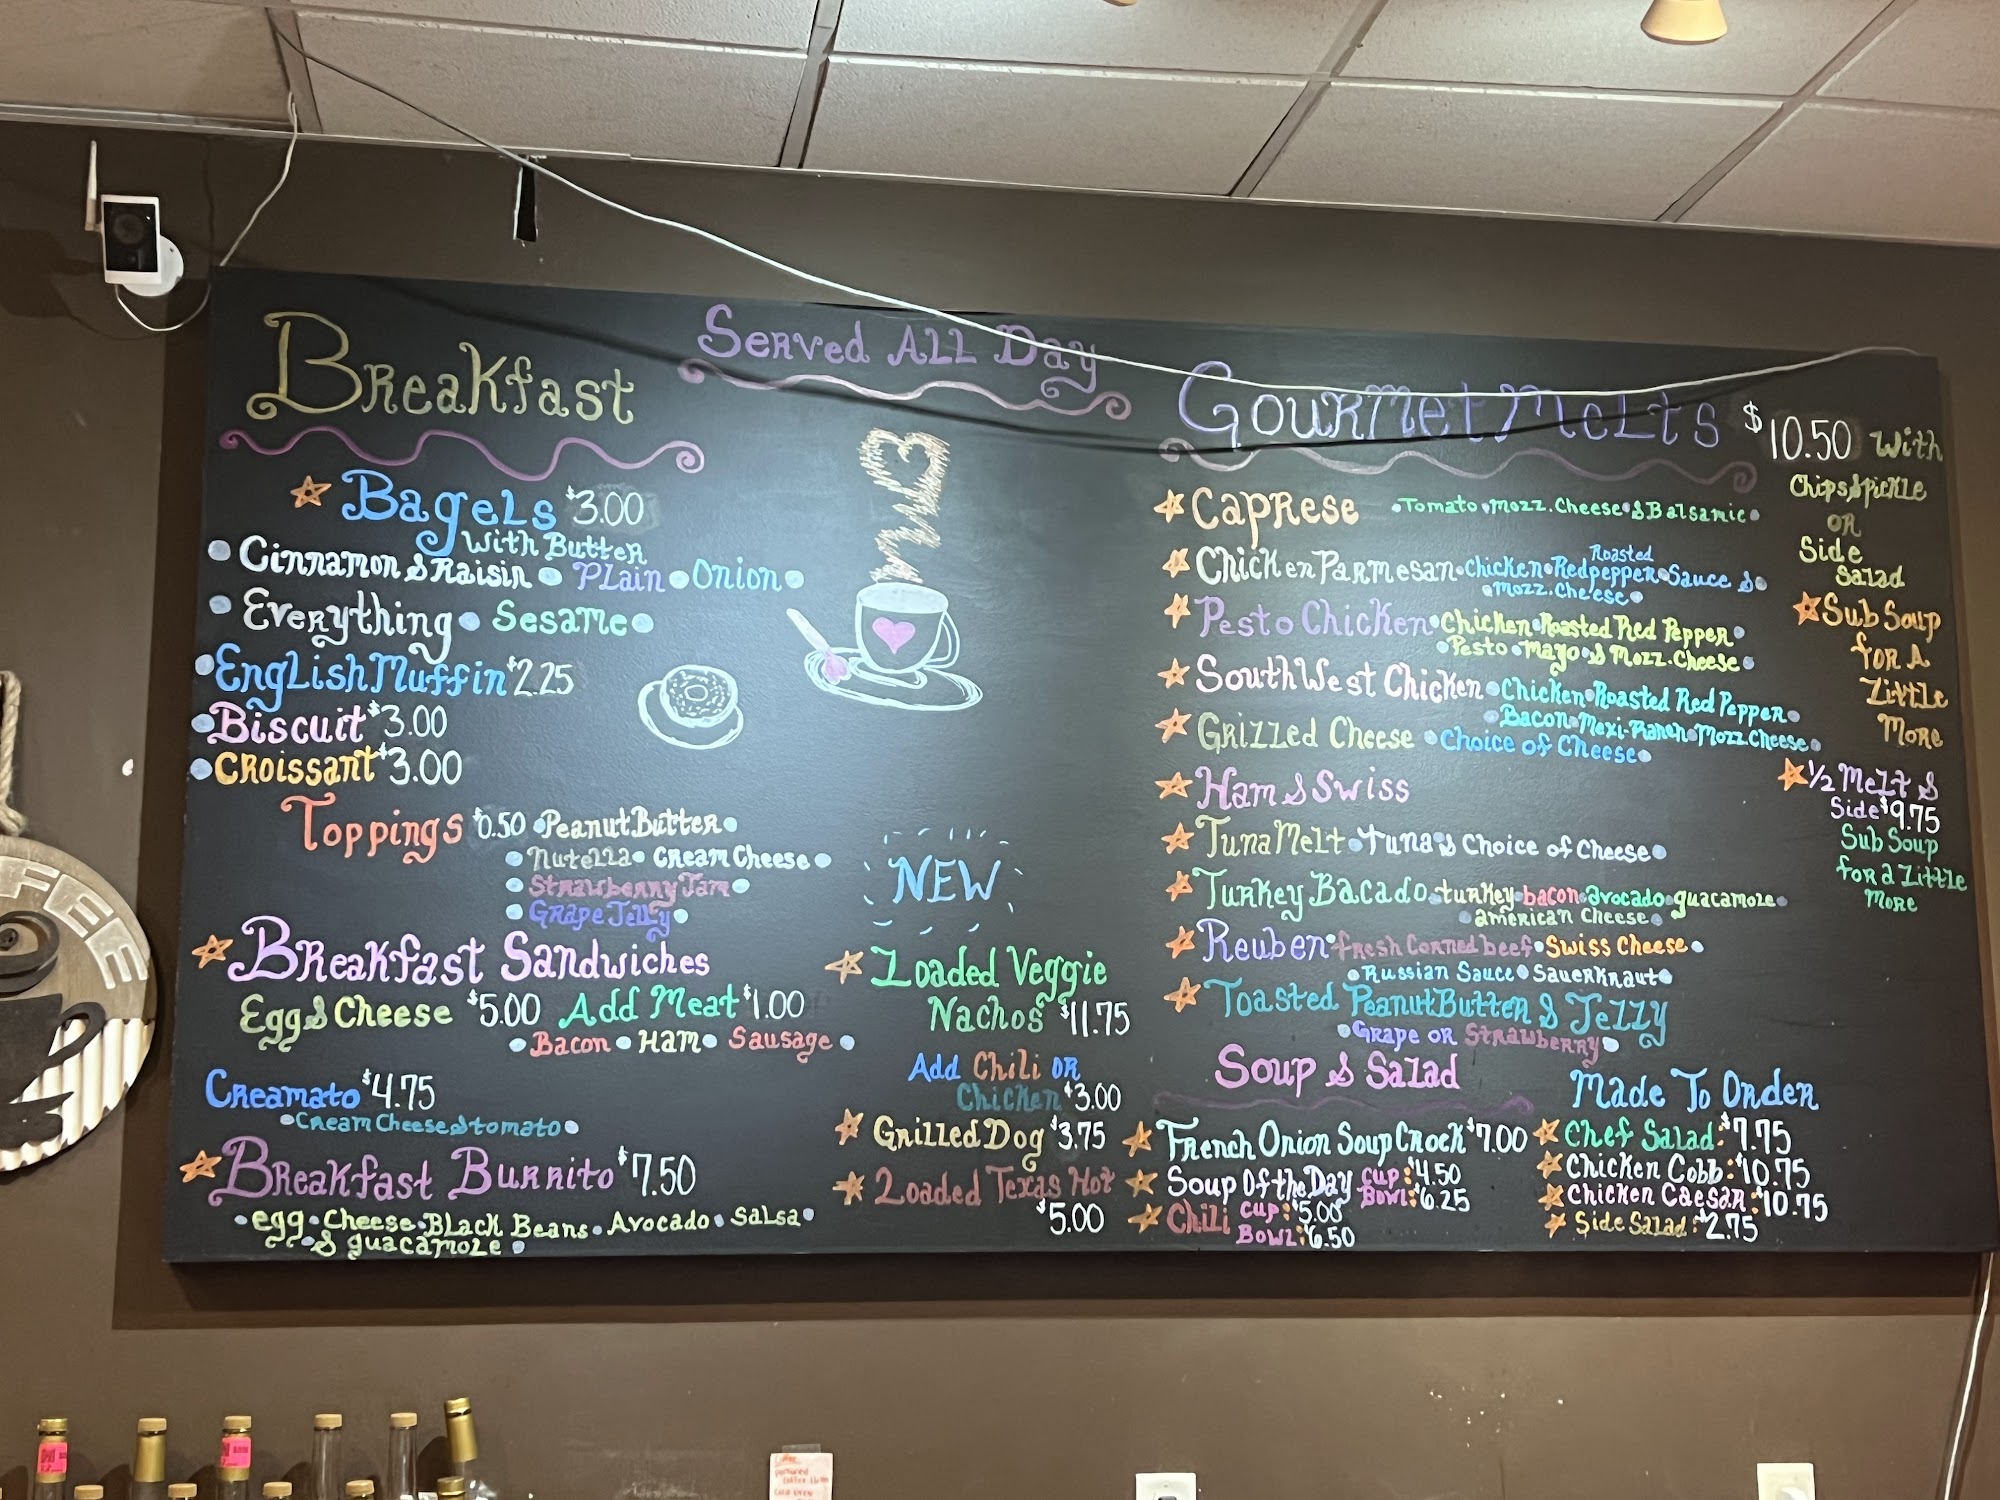 Breakfast
Served All Day
Bagels $3.00
With Butter
Cinnamon & Raisin • Plain • Onion
Everything • Sesame
English Muffin $2.25
Biscuit $3.00
Croissant $3.00
Toppings $0.50 • Peanut Butter
Nutella • Cream Cheese
Strawberry Jam
Grape Jelly
Breakfast Sandwiches
Egg & Cheese $5.00 Add Meat $1.00
Bacon • Ham • Sausage
Creamato $4.75
Cream Cheese & tomato
Breakfast Burrito $7.50
egg • Cheese • Black Beans • Avocado • Salsa
& guacamole
NEW
Loaded Veggie
Nachos $11.75
Add Chili or
Chicken $3.00
Grilled Dog $3.75
Loaded Texas Hot
$5.00
Gourmet Melts $10.50 With
Chips & pickle
or
Side
Salad
Sub Soup
for A
Little
More
1/2 Melt &
Side $9.75
Sub Soup
for a Little
More
Caprese • Tomato • Mozz. Cheese & Balsamic
Chicken Parmesan • Chicken • Roasted Red pepper • Sauce &
Mozz. Cheese
Pesto Chicken • Chicken • Roasted Red Pepper
Pesto • Mayo & Mozz. Cheese
SouthWest Chicken • Chicken • Roasted Red Pepper
Bacon • Mexi-Ranch • Mozz. Cheese
Grilled Cheese • Choice of Cheese
Ham & Swiss
Tuna Melt • Tuna & Choice of Cheese
Turkey Bacado • turkey • bacon • avocado • guacamole
american Cheese
Reuben • fresh Corned beef • Swiss Cheese
Russian Sauce • Sauerkraut
Toasted Peanut Butter & Jelly
Grape or Strawberry
Soup & Salad
French Onion Soup Crock $7.00
Soup Of the Day Cup: $4.50
Bowl: $6.25
Chili Cup: $5.00
Bowl: $6.50
Made To Order
Chef Salad: $7.75
Chicken Cobb: $10.75
Chicken Caesar: $10.75
Side Salad: $2.75
FEE